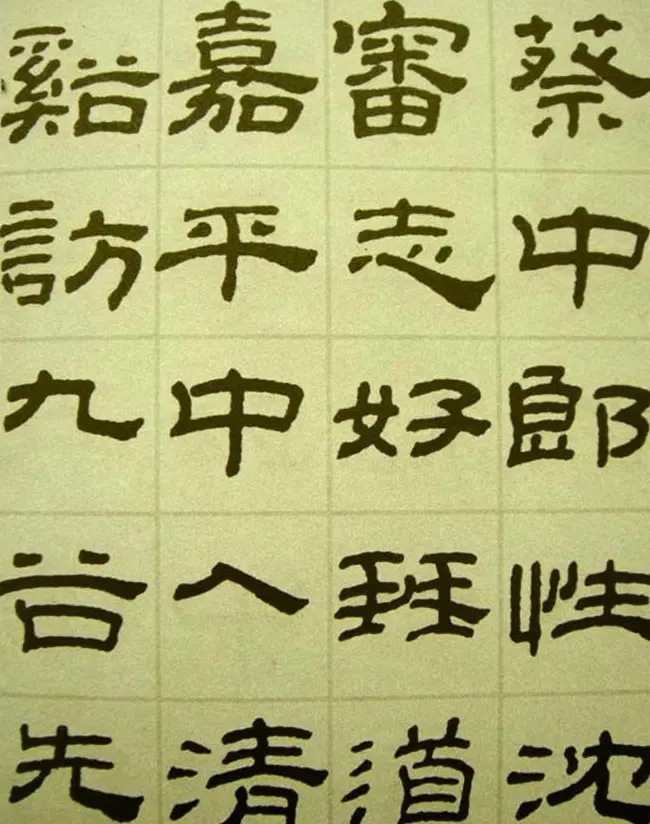 蔡中郎性沈
審志好琴道
嘉平中入清
谿訪九谷先